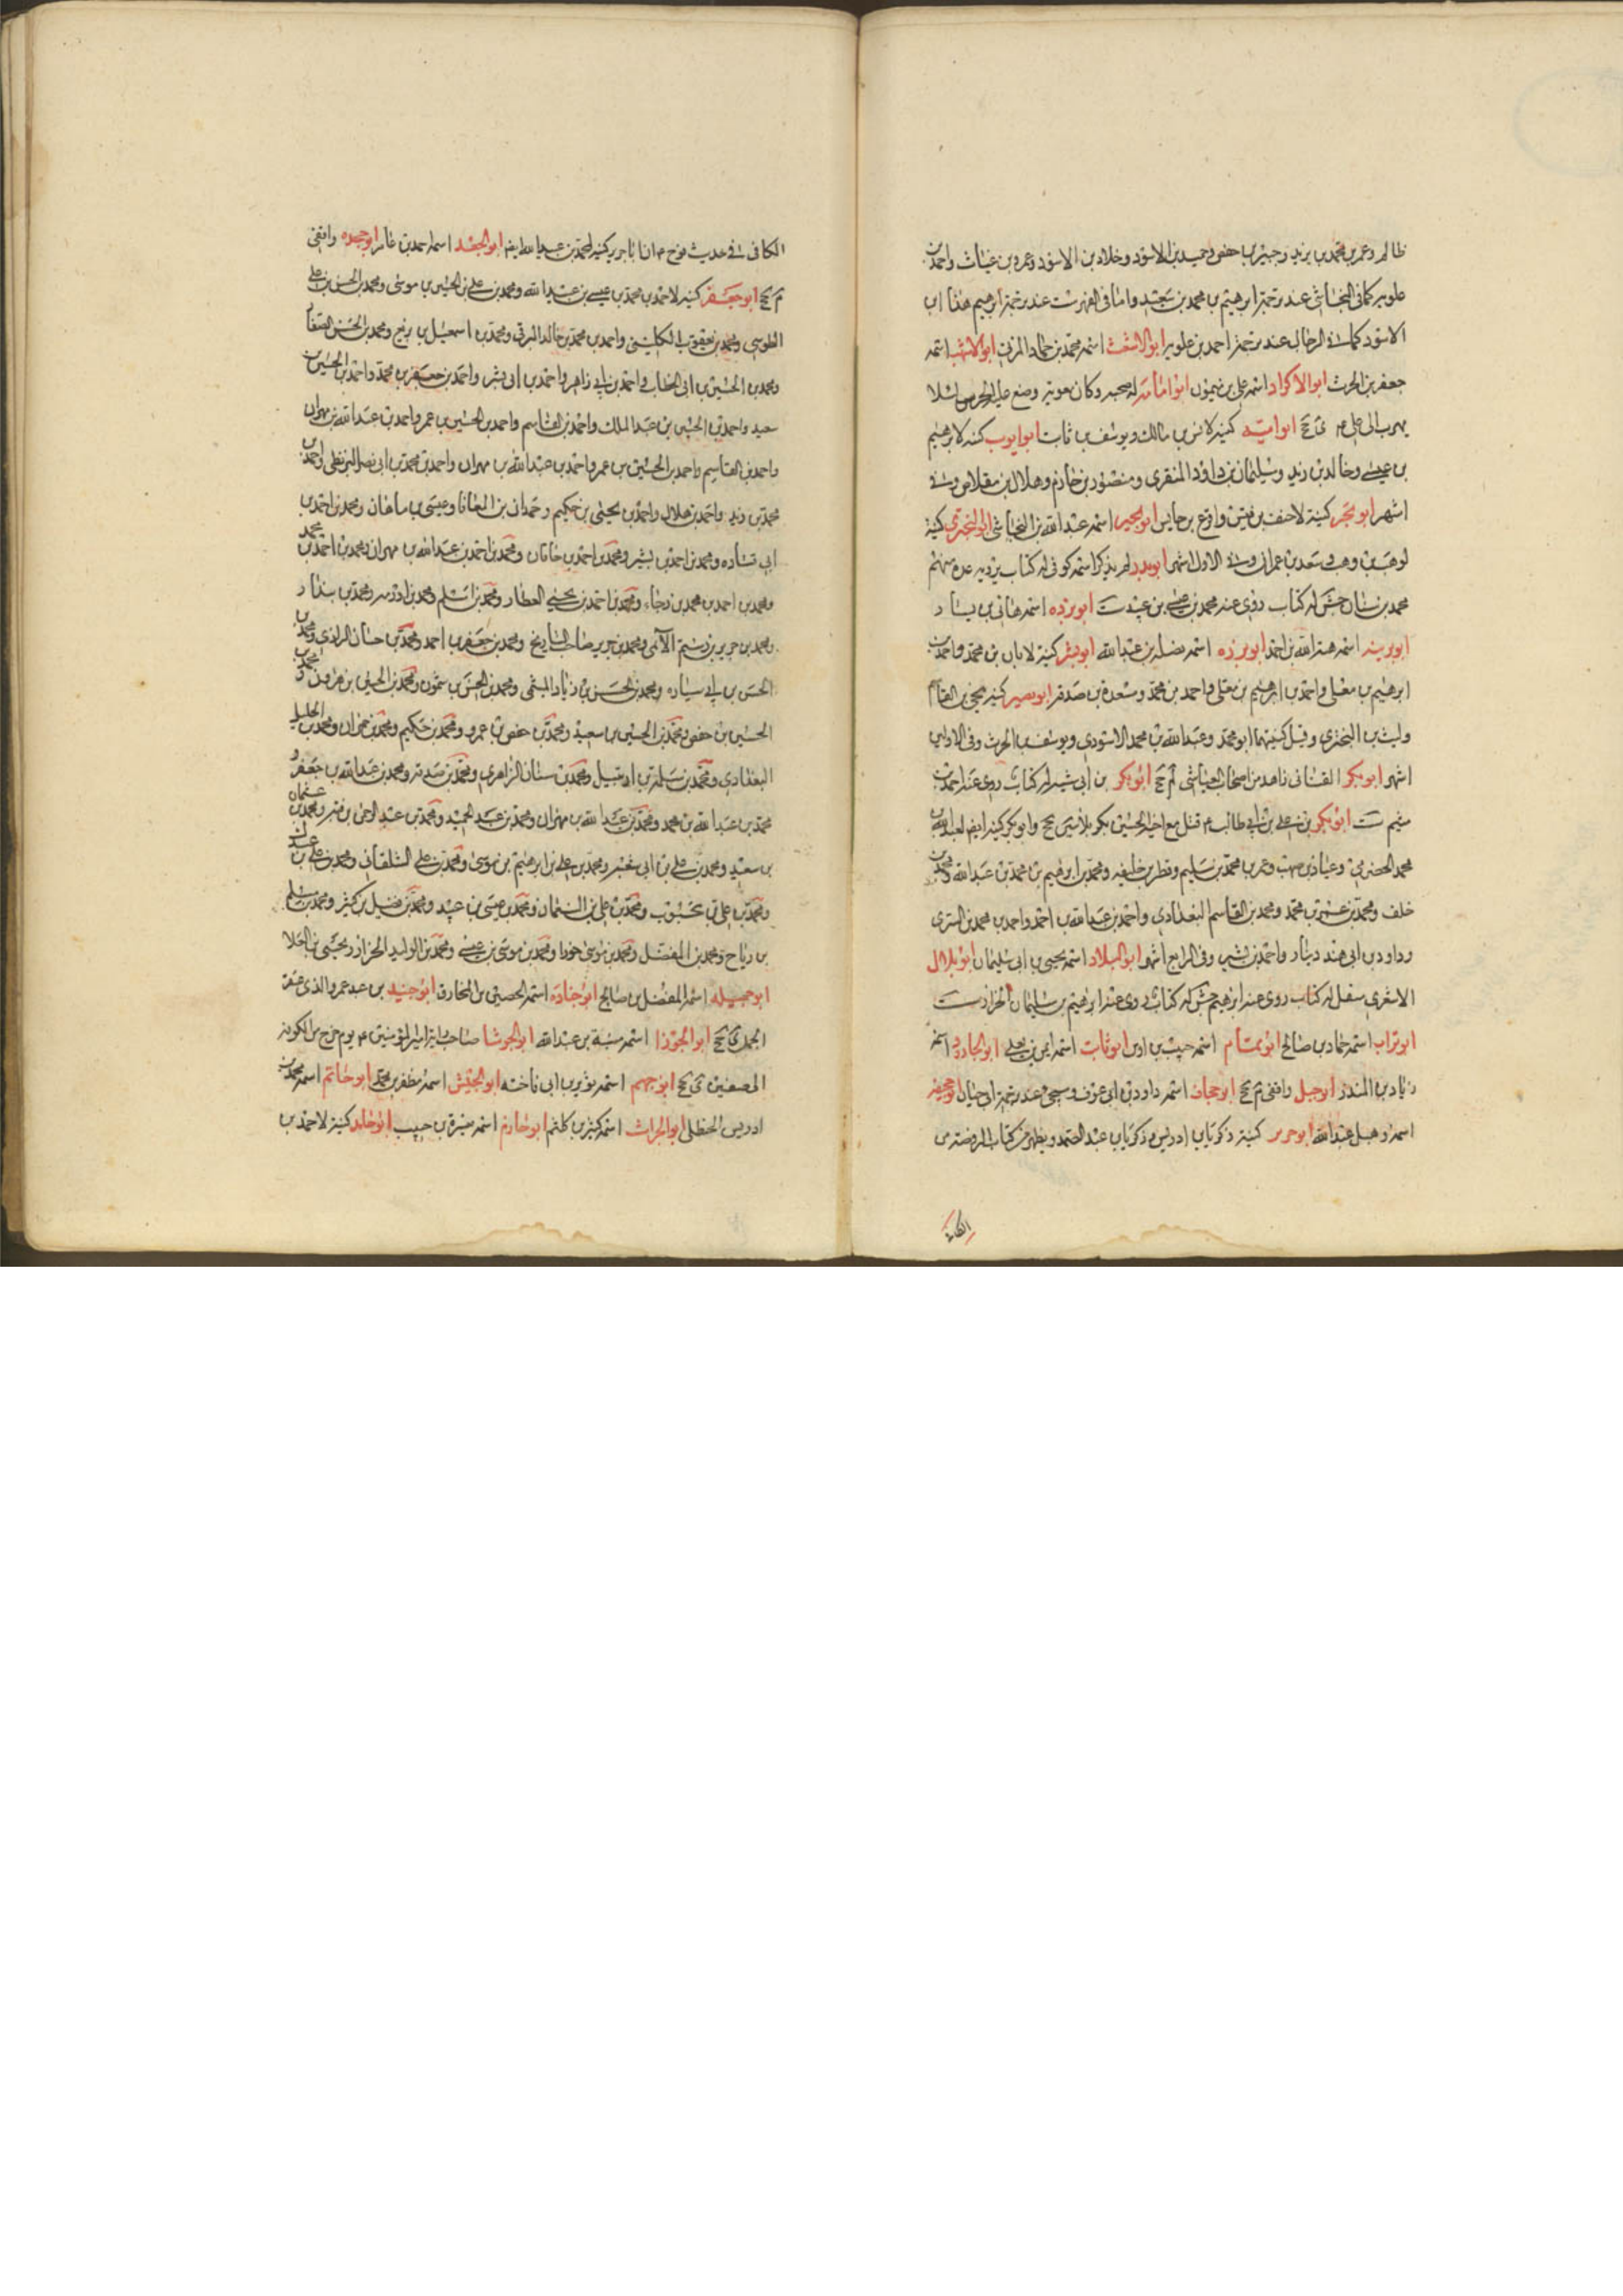 ظالم وعمر بن محمد بن يزيد وجبير بن حفص وحميد بن الاسود وخلاد بن الاسود وعمرو بن غياث واحمد بن
علويه كما في النجاشي عند ترجمة ابرهيم بن محمد بن سعيد واما في الفهرست عند ترجمة ابرهيم هذا ابن
الاسود كما في الرجال عند ترجمة احمد بن علويه ابو الاشعث اسمه محمد بن حماد المزني ابو الاشهب اسمه
جعفر بن الحرث ابو الاكراد اسمه علي بن ميمون ابو امامة له صحبه وكان معوية وضع عليه الحرس لئلا
يهرب الى علي ع ى جخ ابو امية كنية لانس بن مالك ويوسف بن ثابت ابو ايوب كنية لابرهيم
بن عيسى وخالد بن زيد وسليمان بن داود المنقري ومنصور بن حازم وهلال بن مقلاص وفي
اشهر ابو بحر كنية لاحنف بن قيس وادع بن حابس ابو بجير اسمه عبد الله بن النجاشي ابو البختري كنية
لوهب بن وهب وسعد بن عمران وفي الاول اشهر ابو بدر لم يذكر اسمه كوفي له كتاب يرويه عدة منهم
محمد بن سنان جش له كتاب روى عنه محمد بن عيسى بن عبيد ست ابو برده اسمه هاني بن نيار
اسمه هبة الله بن احمد ابو برزه اسمه نضلة بن عبد الله ابو بشر كنية لابان بن محمد واحمد بن
ابرهيم بن معلى واحمد بن ابرهيم بن معلى واحمد بن محمد ومسعدة بن صدقه ابو بصير كنية يحيى بن القاسم
وليث بن البختري وقيل كنيتهما ابو محمد وعبد الله بن محمد الاسدي ويوسف بن الحرث وفي الاولين
اشهر ابو بكر القناني زاهد من اصحاب العياشي لم جخ ابو بكر بن ابي شيبه له كتاب روى عنه احمد بن
ميثم ست ابو بكر بن علي بن ابي طالب ع قتل مع اخيه الحسين بكربلا سين جخ وابو بكر كنية ايضا لعبد الله بن
محمد الحضرمي وعياذ بن صهيب وعمر بن محمد بن سليم وفطر بن خليفه ومحمد بن ابرهيم بن محمد بن عبد الله ومحمد بن
خلف ومحمد بن محمد ومحمد بن القاسم البغدادي واحمد بن عبد الله بن احمد واحمد بن محمد بن السري
وداود بن ابي هند دينار واحمد بن بشير وفي الرابع اشهر ابو البلاد اسمه يحيى بن ابي سليمان ابو بلال
الاشعري مقل له كتاب روى عنه ابرهيم جش له كتاب روى عنه ابرهيم بن سليمان الخزاز ست
ابو تراب اسمه حماد بن صالح ابو تمام اسمه حبيب بن اوس ابو ثابت اسمه ايمن بن يعلى ابو الجارود اسمه
زياد بن المنذر ابو جبل واقفي م جخ اسمه داود بن ابي عوف وسيجيء عند ترجمة ابي حيان ابو جحيفه
اسمه وهب بن عبد الله ابو جرير كنية زكريا بن ادريس وزكريا بن عبد الصمد ويظهر من كتاب الروضة من
الكافي
الكافي في حديث نوح ع ان ابا جرير كنية لمحمد بن عبيد الله ايضا ابو الجعد اسمه احمد بن عامر ابو جعده واقفي
م جخ ابو جعفر كنية لاحمد بن محمد بن عيسى بن عبد الله ومحمد بن علي بن الحسين بن موسى ومحمد بن الحسن بن علي
الطوسي ومحمد بن يعقوب الكليني واحمد بن محمد بن خالد البرقي ومحمد بن اسمعيل بن بزيع ومحمد بن الحسن الصفار
ومحمد بن الحسين بن ابي الخطاب واحمد بن ابي زاهر واحمد بن ابي بشر واحمد بن جعفر بن محمد واحمد بن الحسين بن
سعيد واحمد بن الحسين بن عبد الملك واحمد بن القاسم واحمد بن الحسين بن عمر واحمد بن عبد الله بن مهران
واحمد بن القاسم واحمد بن الحسين بن عمر واحمد بن عبد الله بن مهران واحمد بن محمد بن ابي نصر البزنطي واحمد بن
محمد بن زيد واحمد بن هلال واحمد بن يحيى بن حكيم وحمدان بن المعافا وعيسى بن ماهان ومحمد بن احمد بن
ابي قتاده ومحمد بن احمد بن بشير ومحمد بن احمد بن خاقان ومحمد بن احمد بن عبد الله بن مهران ومحمد بن احمد بن محمد
ومحمد بن احمد بن محمد بن رجاء ومحمد بن احمد بن يحيى العطار ومحمد بن اسلم ومحمد بن اورمه ومحمد بن بندار
ومحمد بن جرير بن رستم الآملي ومحمد بن جرير صاحب التاريخ ومحمد بن جعفر بن احمد ومحمد بن حسان الرازي ومحمد بن
الحسن بن ابي ساره ومحمد بن الحسن بن زياد الميثمي ومحمد بن الحسن بن شمون ومحمد بن الحسين بن هرون ومحمد بن
الحسين بن حفص ومحمد بن الحسين بن سعيد ومحمد بن حفص بن عمرو ومحمد بن حكيم ومحمد بن حمران ومحمد بن الخليل
البغدادي ومحمد بن سلمة بن ارتبيل ومحمد بن سنان الزاهري ومحمد بن صدقه ومحمد بن عبد الله بن جعفر و
محمد بن عبد الله بن محمد ومحمد بن عبد الله بن مهران ومحمد بن عبد الحميد ومحمد بن عبد الرحمن بن قبه ومحمد بن عثمان
بن سعيد ومحمد بن علي بن ابي شعبه ومحمد بن علي بن ابرهيم بن موسى ومحمد بن علي الشلقاني ومحمد بن علي بن عبدك
ومحمد بن علي بن محبوب ومحمد بن علي بن النعمان ومحمد بن عيسى بن عبيد ومحمد بن فضيل بن كثير ومحمد بن مسلم
بن رياح ومحمد بن المفضل ومحمد بن موسى خورا ومحمد بن موسى بن عيسى ومحمد بن الوليد الخزاز ويحيى بن العلا
ابو جميله اسمه المفضل بن صالح ابو جناده اسمه الحصين بن المخارق ابو جنيد بن عبد عمرو الذي عقر
الجمل ى جخ ابو الجوزا اسمه منبه بن عبد الله ابو الجوشا صاحب راية امير المؤمنين ع يوم خرج من الكوفة
الى صفين ى جخ ابو جهم اسمه ثوير بن ابي فاخته ابو الجيش اسمه مظفر بن محمد ابو حاتم اسمه محمد بن
ادريس الحنظلي ابو الحراث اسمه كثير بن كلثم ابو حازم اسمه ميسرة بن حبيب ابو حامد كنية لاحمد بن